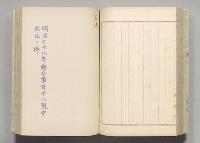 明治二十八年勅令第百十八號中
改正ノ件